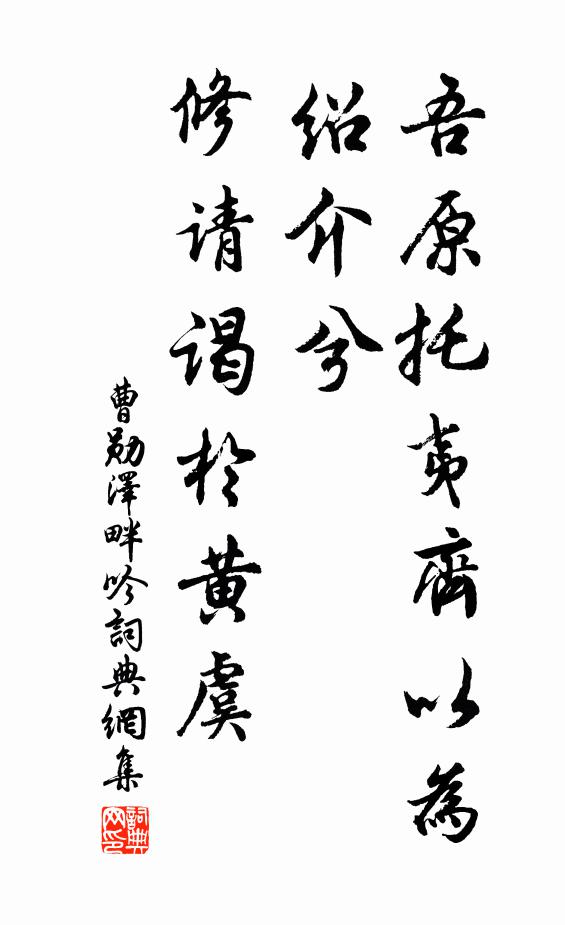 吾原托夷齊以為
紹介兮
修请謁於黃虞
曹勛澤畔吟詞典網集
詞典
网印